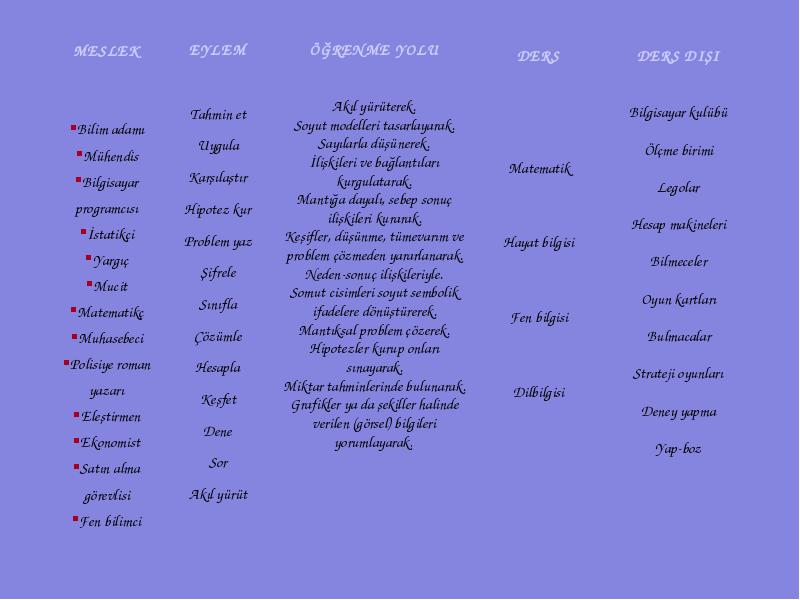 MESLEK
Bilim adamı
Mühendis
Bilgisayar
programcısı
İstatikçi
Yargıç
Mucit
Matematikç
Muhasebeci
Polisiye roman
yazarı
Eleştirmen
Ekonomist
Satın alma
görevlisi
Fen bilimci
EYLEM
Tahmin et
Uygula
Karşılaştır
Hipotez kur
Problem yaz
Şifrele
Sınıfla
Çözümle
Hesapla
Keşfet
Dene
Sor
Akıl yürüt
ÖĞRENME YOLU
Akıl yürüterek.
Soyut modelleri tasarlayarak.
Sayılarla düşünerek.
İlişkileri ve bağlantıları
kurgulatarak.
Mantığa dayalı, sebep sonuç
ilişkileri kurarak.
Keşifler, düşünme, tümevarım ve
problem çözmeden yararlanarak.
Neden-sonuç ilişkileriyle.
Somut cisimleri soyut sembolik
ifadelere dönüştürerek.
Mantıksal problem çözerek.
Hipotezler kurup onları
sınayarak.
Miktar tahminlerinde bulunarak.
Grafikler ya da şekiller halinde
verilen (görsel) bilgileri
yorumlayarak.
DERS
Matematik
Hayat bilgisi
Fen bilgisi
Dilbilgisi
DERS DIŞI
Bilgisayar kulübü
Ölçme birimi
Legolar
Hesap makineleri
Bilmeceler
Oyun kartları
Bulmacalar
Strateji oyunları
Deney yapma
Yap-boz